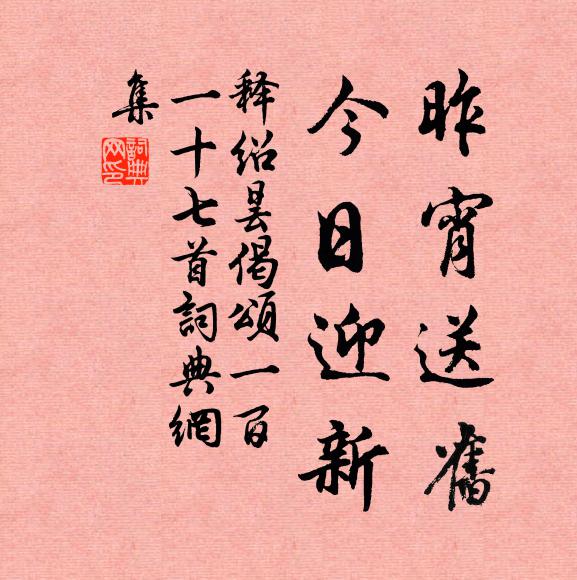 昨宵送舊
今日迎新
释绍昙偈頌一百
一十七首詞典網
集
詞典網印